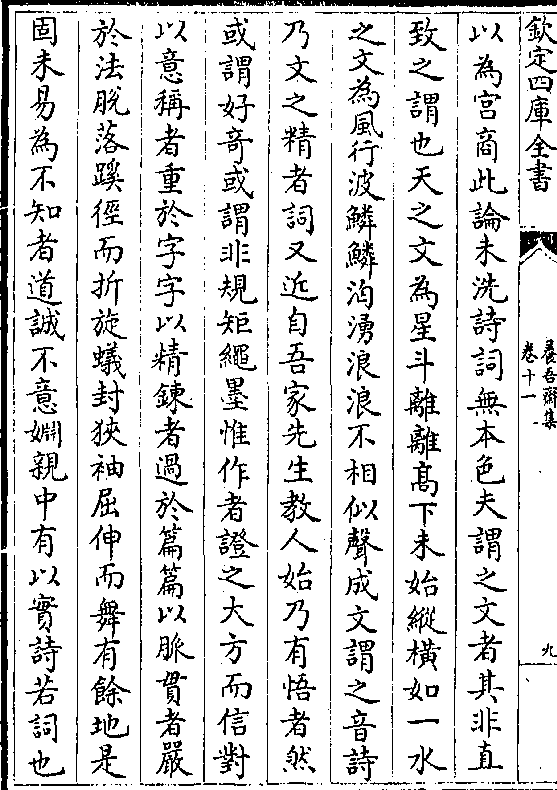 欽定四庫全書
養吾齋集
卷十一
九
以為宫商此論未洗詩詞無本色夫謂之文者其非直
致之謂也天之文為星斗離離髙下未始縱横如一水
之文為風行波鱗鱗汩湧浪浪不相似聲成文謂之音詩
乃文之精者詞又近自吾家先生教人始乃有悟者然
或謂好竒或謂非規矩繩墨惟作者證之大方而信對
以意稱者重於字字以精鍊者過於篇篇以脈貫者嚴
於法脫落蹊徑而折旋蟻封狹袖屈伸而舞有餘地是
固未易為不知者道誠不意婣親中有以實詩若詞也